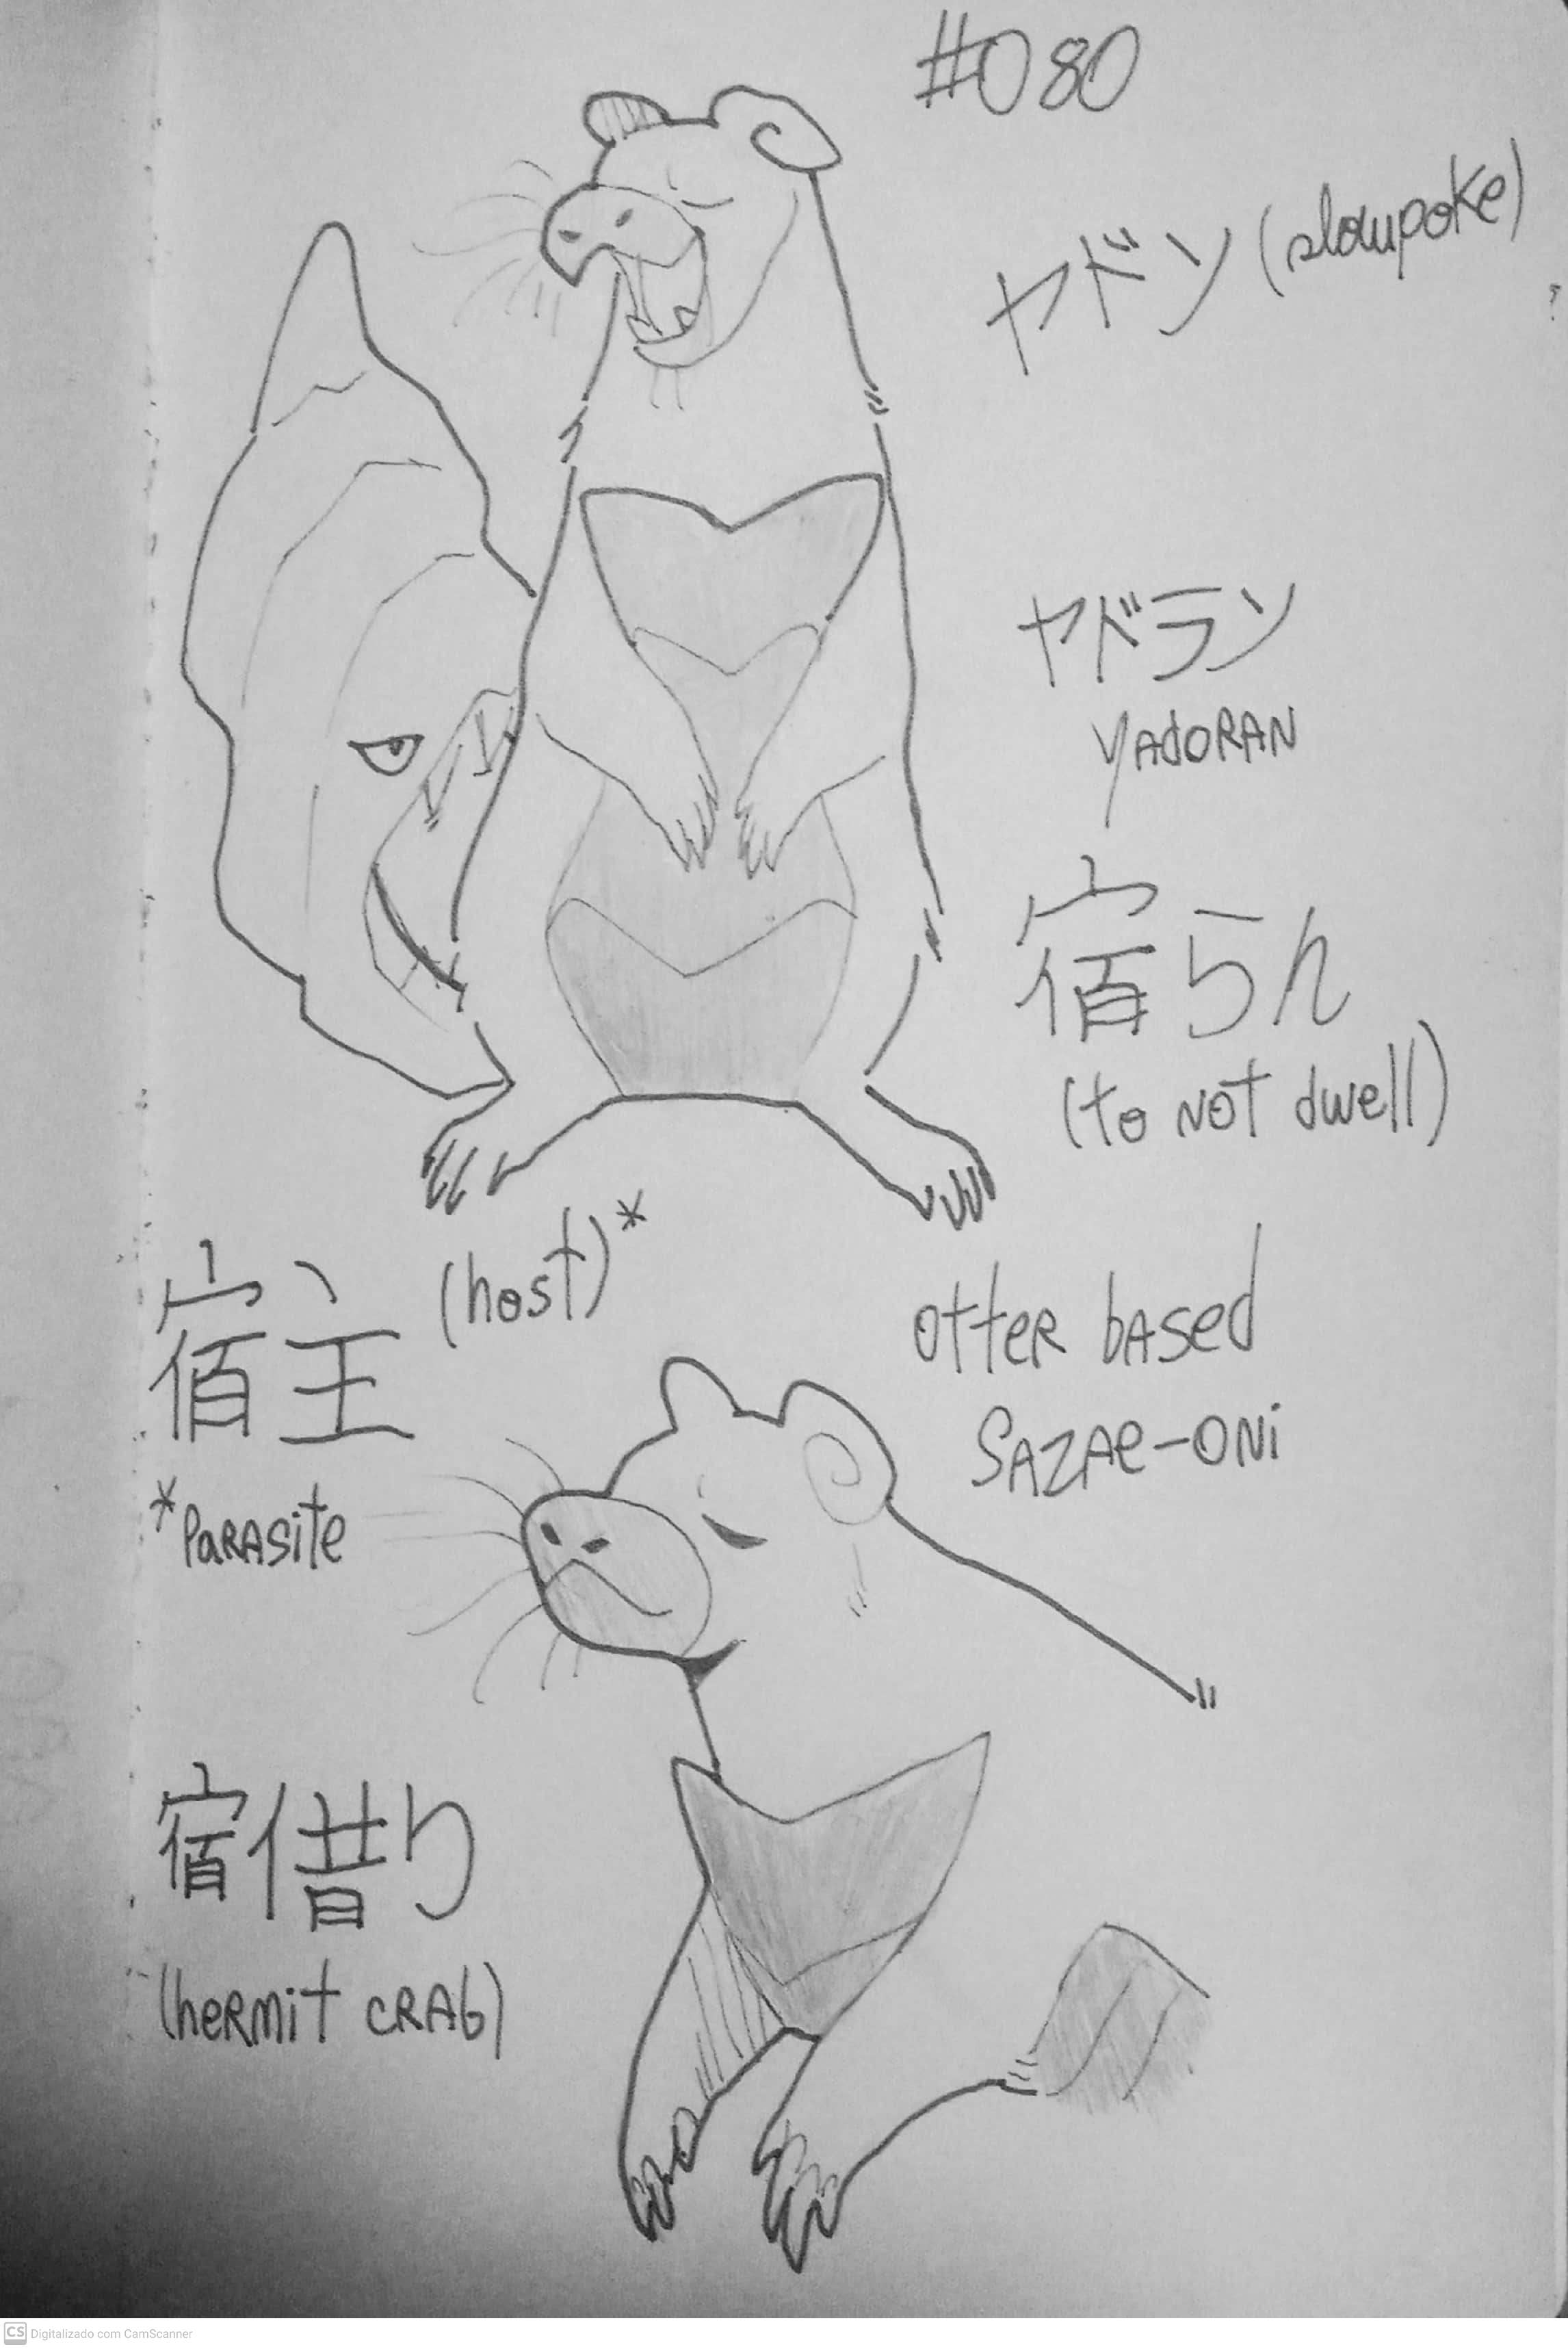 #080
ヤドン (slowpoke)
ヤドラン
YADORAN
宿らん
(to not dwell)
宿主 (host)*
*Parasite
otter based
Sazae-oni
宿借り
(hermit crab)
CS Digitalizado com CamScanner